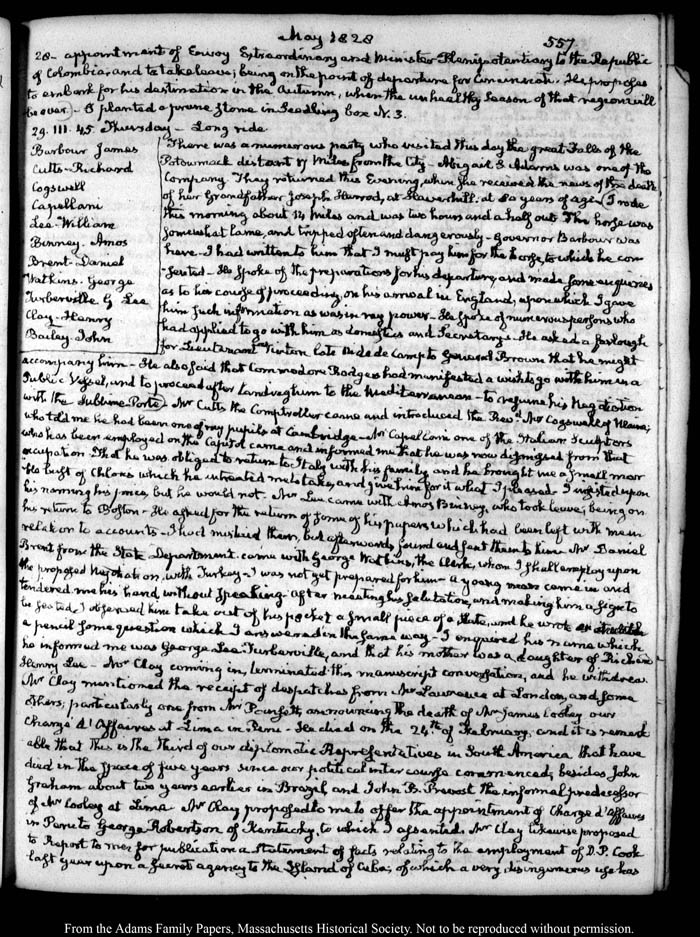 May 1828
557
28- appointment of Envoy Extraordinary and Minister Plenipotentiary to the Republic
of Colombia, and to take leave; being on the point of departure for Cincinnati. He proposes
to embark for his destination in the Autumn, when the unhealthy Season of that region will
be over- I planted a prune stone in Seedling box N. 3.
29. III. 45. Thursday- Long ride
Barbour James
Cutts- Richard
Cogswell
Capellani
Lee- William
Binney. Amos
Brent- Daniel
Watkins. George
Turberville. G Lee
Clay- Henry
Bailey- John
There was a numerous party who visited this day the great Falls of the
Potowmack distant 17 Miles from the City- Abigail S Adams was one of the
Company. They returned this Evening, when she received the news of the death
of her Grandfather Joseph Harrod, at Haverhill, at 80 years of age- I rode
this morning about 14 miles and was two hours and a half out. The horse was
somewhat lame, and tripped often and dangerously- Governor Barbour was
here- I had written to him that I must pay him for the horse, to which he con
-sented- He spoke of the preparations for his departure, and made some enquiries
as to his course of proceeding, on his arrival in England, upon which I gave
him such information as was in my power- He spoke of numerous persons who
had applied to go with him as domestics and Secretarys- He asked a furlough
for Lieutenant Vinton late Aid de Camp to General Brown that he might
accompany him- He also said that Commodore Rodgers had manifested a wish to go with him in a
Public Vessel, and to proceed after landing him to the Mediterranean- to resume his Negotiation
with the Sublime Porte- Mr Cutts the Comptroller came and introduced the Revd. Mr Cogswell of Maine;
who told me he had been one of my pupils at Cambridge- Mr Capellani one of the Italian Sculptors
who has been employed on the Capitol came and informed me that he was now dismissed from that
occupation. That he was obliged to return to Italy with his family, and he brought me a small mar
ble bust of Chloris which he intreated me to take, and give him for it what I pleased- I insisted upon
his naming his price, but he would not. Mr Lee came with Amos Binney, who took leave; being on
his return to Boston- He asked for the return of some of his papers which had been left with me in
relation to accounts- I had mislaid them, but afterwards found and sent them to him- Mr Daniel
Brent from the State Department. came with George Watkins, the Clerk, whom I shall employ upon
the proposed Negotiation, with Turkey- I was not yet prepared for him- a young man came in and
tendered me his hand, without speaking- after meeting his Salutation, and making him a sign to
be seated, I observed him take out of his pocket a small piece of a slate, and he wrote
a pencil some question which I answered in the same way- I enquired his name which
he informed me was George Lee Turberville, and that his mother was a daughter of Richard
Henry Lee- Mr Clay coming in, terminated this manuscript conversation, and he withdrew.
Mr Clay mentioned the receipt of despatches from Mr Lawrence at London, and some
others; particularly one from Mr Poinsett, announcing the death of Mr James Cooley our
Chargé d'Affaires at Lima in Peru- He died on the 24th of February, and it is remark
able that this is the third of our diplomatic Representatives in South America that have
died in the space of five years since our political intercourse commenced; besides John
Graham about two years earlier in Brazil, and John B. Prevost the informal predecessor
of Mr Cooley at Lima Mr Clay proposed to me to offer the appointment of Chargé d'Affaires
in Peru to George Robertson of Kentucky, to which I assented. Mr Clay likewise proposed
to Report to me, for publication a Statement of facts relating to the employment of D. P. Cook
last year upon a secret agency to the Island of Cuba; of which a very disingenuous use has
From the Adams Family Papers, Massachusetts Historical Society. Not to be reproduced without permission.